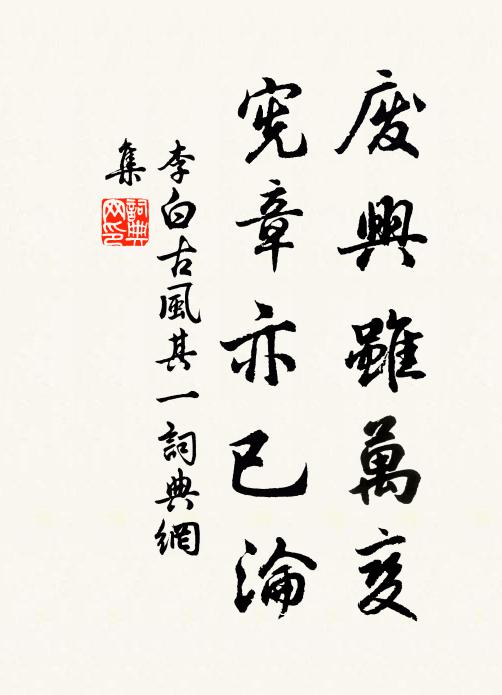 廢興雖萬變
憲章亦已淪
李白古風其一詞典網
集
詞典
网印